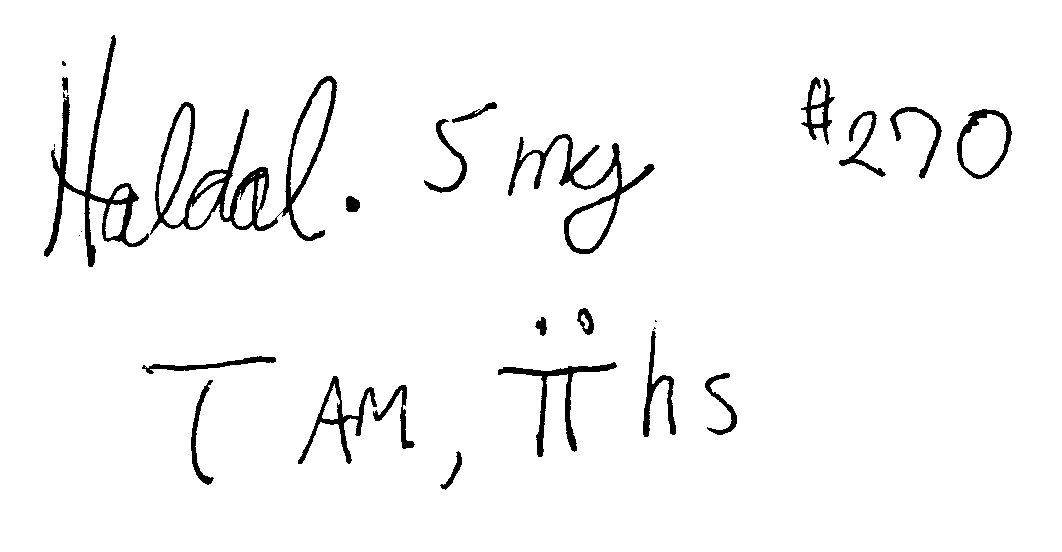 Haldol. 5 mg #270
T AM, ïï hs